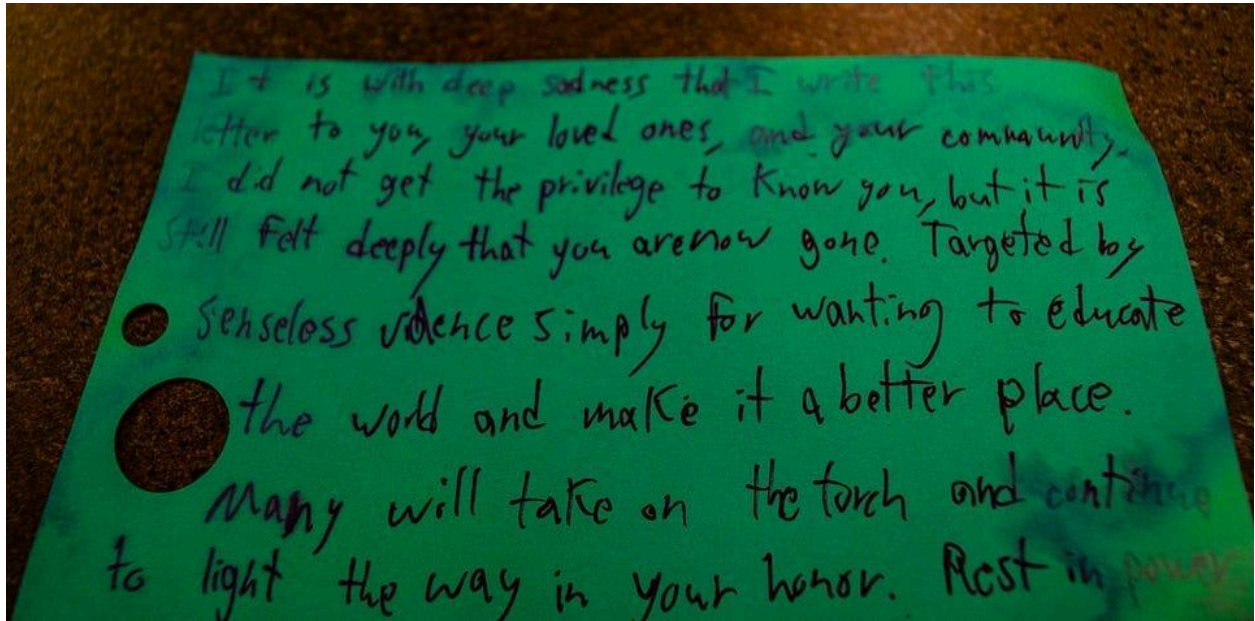 It is with deep sadness that I write this
letter to you, your loved ones, and your community.
I did not get the privilege to know you, but it is
still felt deeply that you are now gone. Targeted by
senseless violence simply for wanting to educate
the world and make it a better place.
Many will take on the torch and continue
to light the way in your honor. Rest in power